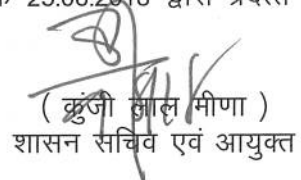 23.08.2018 द्वारा प्रदत्त
( कुंजी लाल मीणा )
शासन सचिव एवं आयुक्त